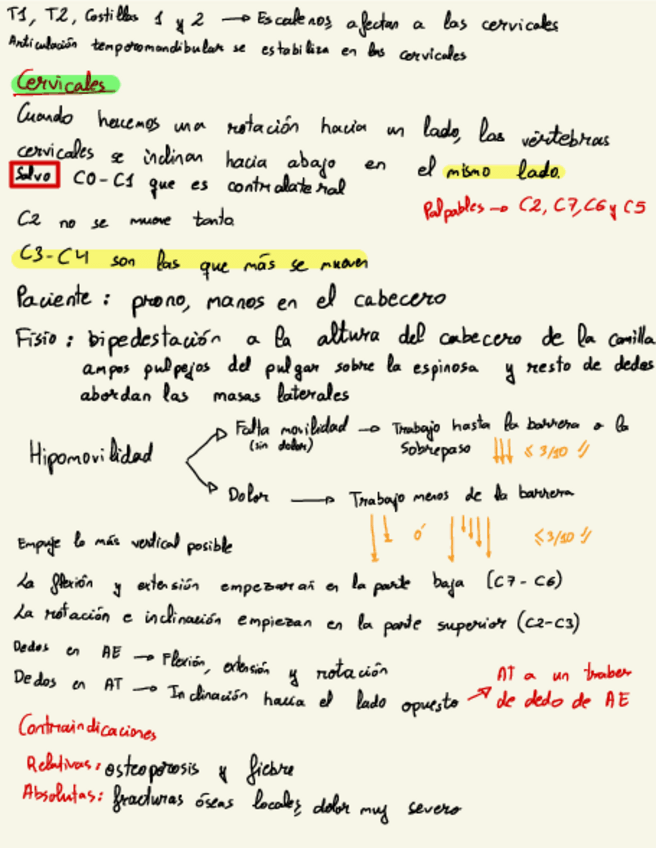 T1, T2, Costillas 1 y 2 → Escalenos, afectan a las cervicales
Articulación temporomandibular se estabiliza en las cervicales
Cervicales
Cuando hacemos una rotación hacia un lado, las vértebras
cervicales se inclinan hacia abajo en el mismo lado.
Salvo C0-C1 que es contralateral
Palpables → C2, C7, C6 y C5
C2 no se mueve tanto
C3-C4 son las que más se mueven
Paciente: prono, manos en el cabecero
Fisio: bipedestación a la altura del cabecero de la camilla
ampos pulpejos del pulgar sobre la espinosa y resto de dedos
abordan las masas laterales
Hipomovilidad
Falta movilidad → Trabajo hasta la barrera o la
(sin dolor) Sobrepaso ≤ 3/10
Dolor → Trabajo menos de la barrera
ó ≤3/10
Empuje lo más vertical posible
La flexión y extensión empezarán en la parte baja (C7-C6)
La rotación e inclinación empiezan en la parte superior (C2-C3)
Dedos en AE → Flexión, extensión y rotación
Dedos en AT → Inclinación hacia el lado opuesto → AT a un traber
de dedo de AE
Contraindicaciones
Relativas: osteoporosis y fiebre
Absolutas: fracturas óseas locales, dolor muy severo